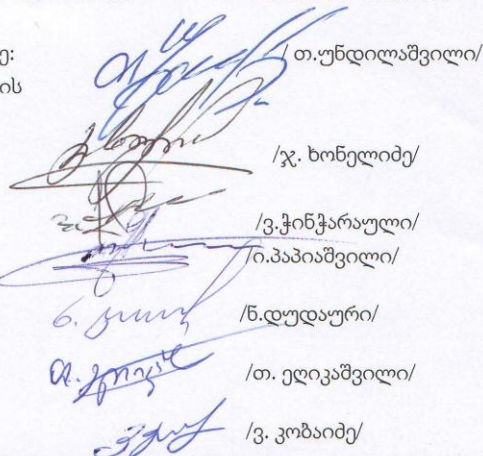 ე: / თ.უნდილაშვილი/
ის
/ჯ. ხონელიძე/
/ვ.ჭინჭარაული/
/ი.პაპიაშვილი/
ნ. /ნ.დუდაური/
თ. /თ. ეღიკაშვილი/
/ვ. კობაიძე/